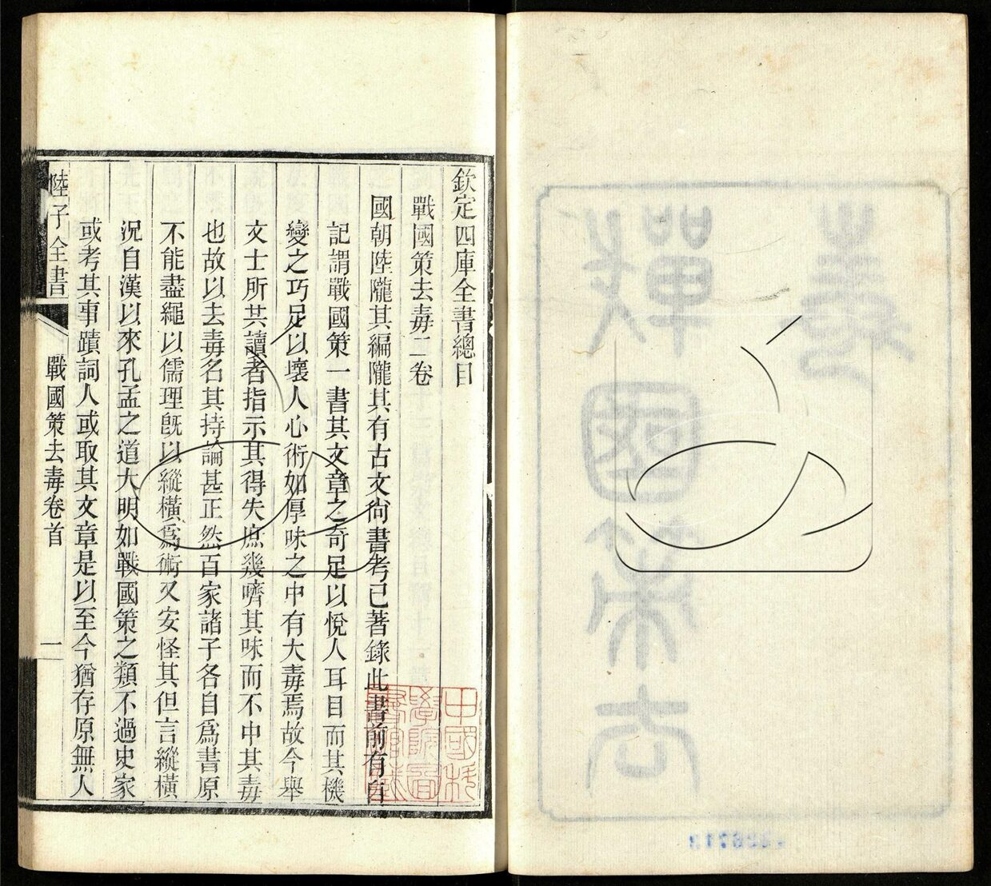 欽定四庫全書總目
戰國策去毒二卷
國朝陸隴其編隴其有古文尚書考已著錄此書前有自
記謂戰國策一書其文章之奇足以悅人耳目而其機
變之巧足以壞人心術如厚味之中有大毒焉故今舉
文士所共讀者指示其得失庶幾嚌其味而不中其毒
也故以去毒名其持論甚正然百家諸子各自爲書原
不能盡繩以儒理旣以縱橫爲術又安怪其但言縱橫
況自漢以來孔孟之道大明如戰國策之類不過史家
或考其事蹟詞人或取其文章是以至今猶存原無人
陸子全書
戰國策去毒卷首
一